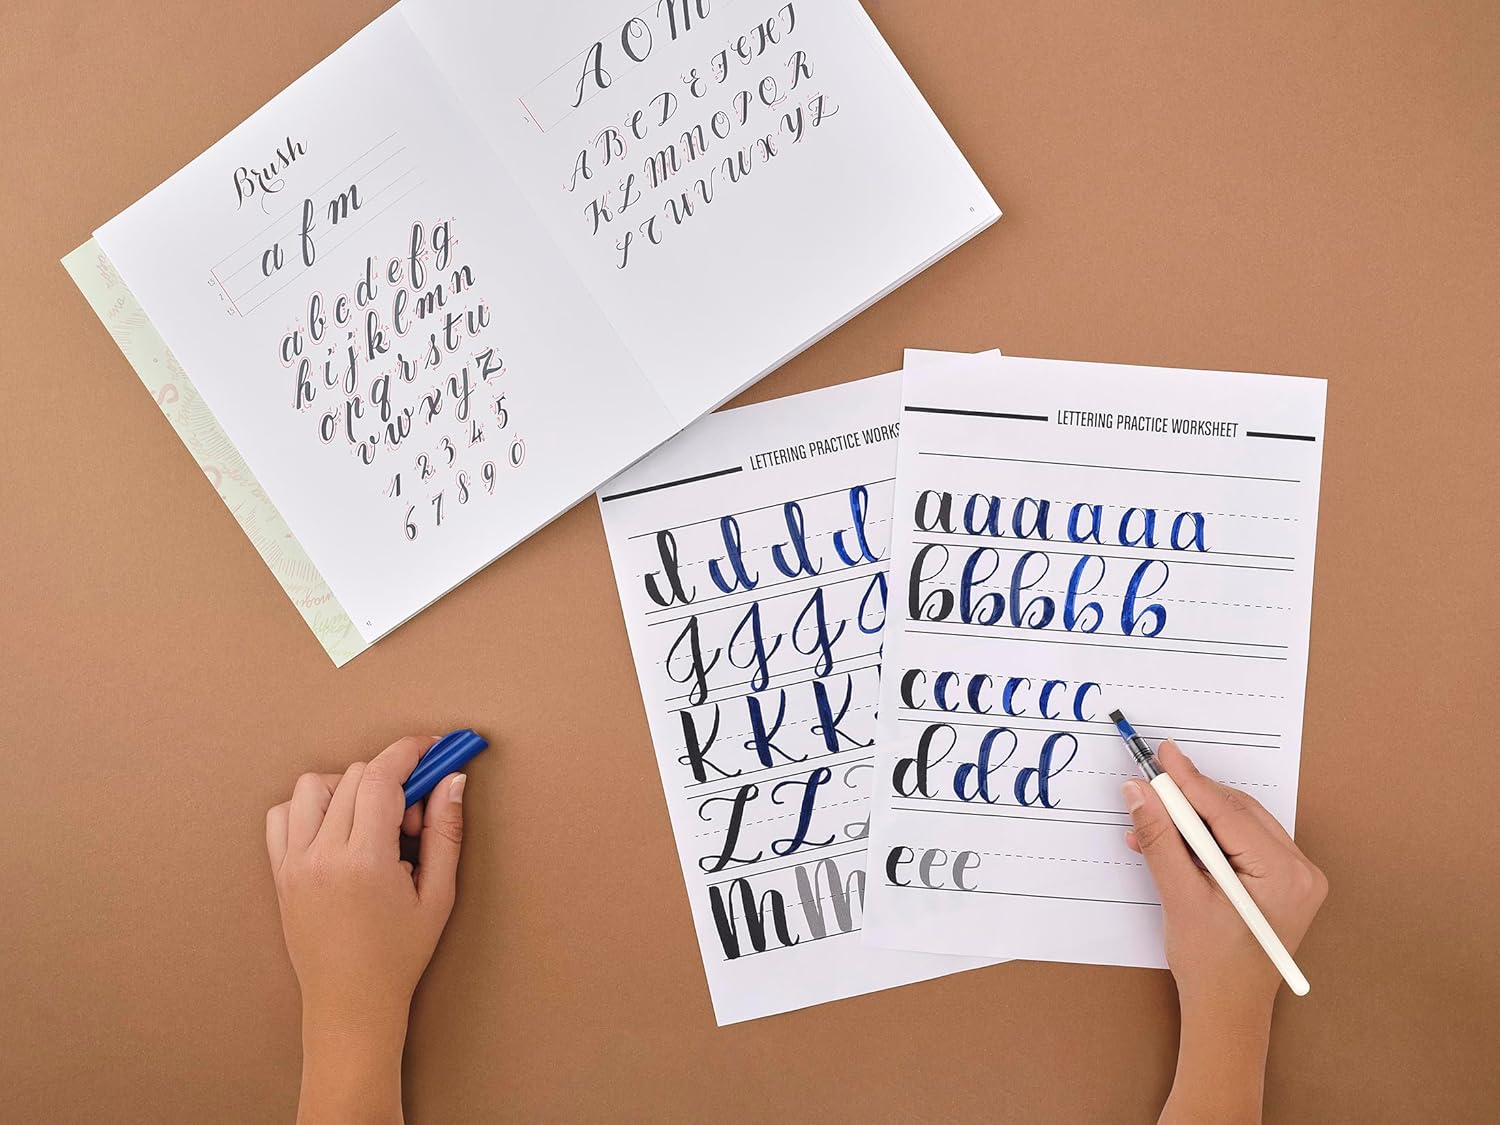 Brush
a f m
a b c d e f g
h i j k l m n
o p q r s t u
v w x y z
1 2 3 4 5
6 7 8 9 0
12
A O M
A B C D E F G H I
K L M N O P Q R
S T U V W X Y Z
LETTERING PRACTICE WORKS
d d d d
J J J J
K K K
L L L
M M
LETTERING PRACTICE WORKSHEET
a a a a a a
b b b b b
c c c c c c
d d d
e e e